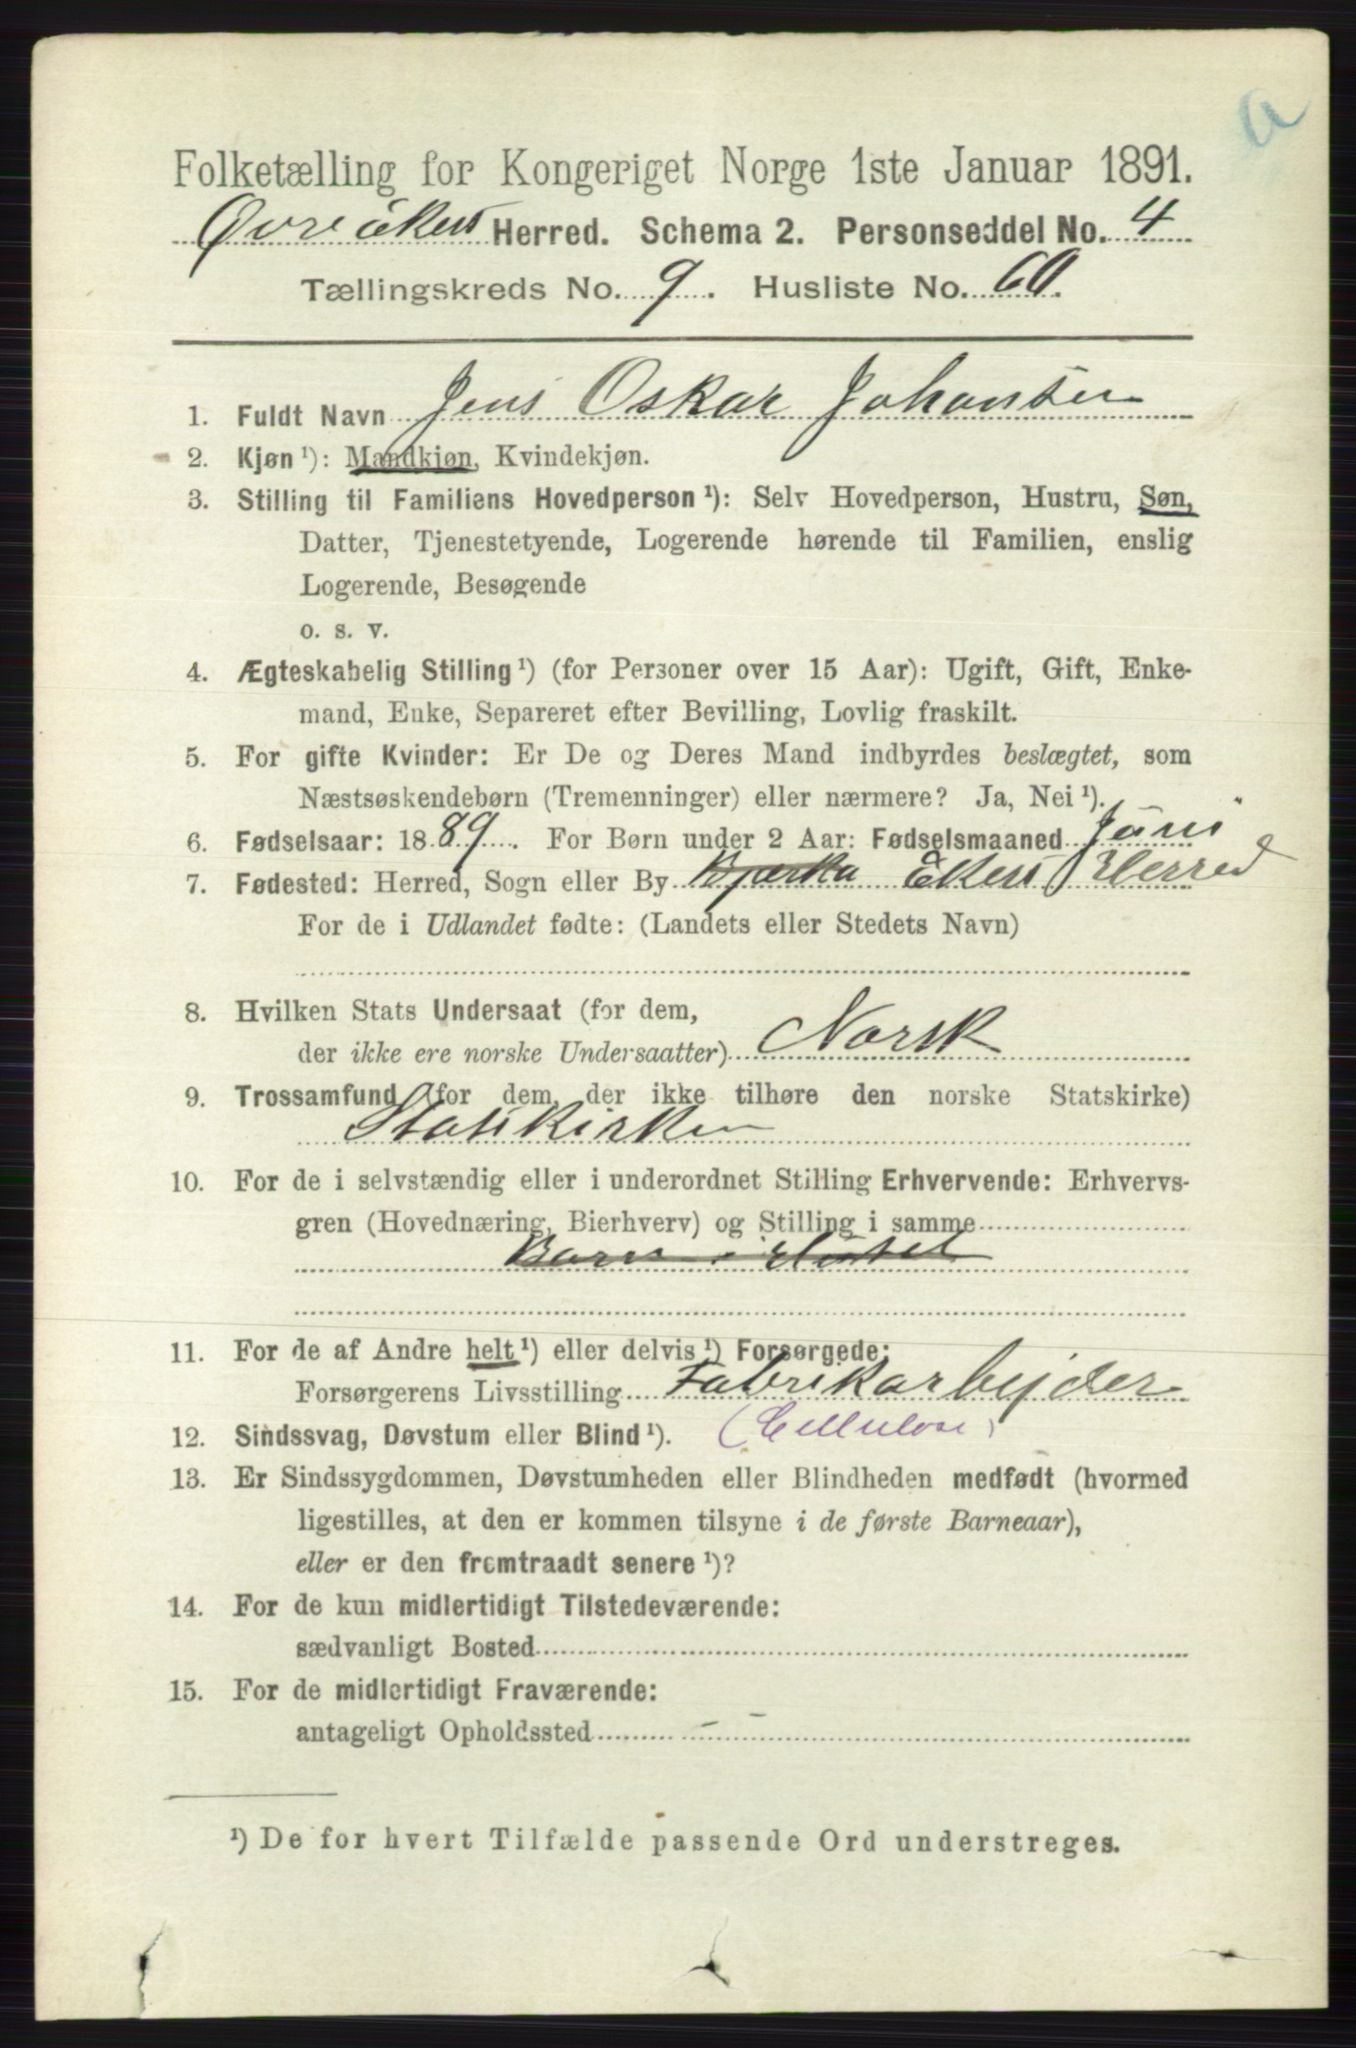 a
Folketælling for Kongeriget Norge 1ste Januar 1891.
Øvre Ekers Herred. Schema 2. Personseddel No. 4
Tællingskreds No. 9. Husliste No. 60.
1. Fuldt Navn Jens Oskar Johansen
2. Kjøn ¹): Mandkjøn, Kvindekjøn.
3. Stilling til Familiens Hovedperson ¹): Selv Hovedperson, Hustru, Søn,
Datter, Tjenestetyende, Logerende hørende til Familien, enslig
Logerende, Besøgende
o. s. v.
4. Ægteskabelig Stilling ¹) (for Personer over 15 Aar): Ugift, Gift, Enke-
mand, Enke, Separeret efter Bevilling, Lovlig fraskilt.
5. For gifte Kvinder: Er De og Deres Mand indbyrdes beslægtet, som
Næstsøskendebørn (Tremenninger) eller nærmere? Ja, Nei ¹).
6. Fødselsaar: 1889. For Børn under 2 Aar: Fødselsmaaned Juni
7. Fødested: Herred, Sogn eller By Bjerka Ekers Herred
For de i Udlandet fødte: (Landets eller Stedets Navn)
8. Hvilken Stats Undersaat (for dem,
der ikke ere norske Undersaatter) Norsk
9. Trossamfund (for dem, der ikke tilhøre den norske Statskirke)
Statskirken
10. For de i selvstændig eller i underordnet Stilling Erhvervende: Erhvervs-
gren (Hovednæring, Bierhverv) og Stilling i samme
Barn i Huset
11. For de af Andre helt ¹) eller delvis ¹) Forsørgede:
Forsørgerens Livsstilling Fabrikarbejder
12. Sindssvag, Døvstum eller Blind ¹). (Cellulose)
13. Er Sindssygdommen, Døvstumheden eller Blindheden medfødt (hvormed
ligestilles, at den er kommen tilsyne i de første Barneaar),
eller er den fremtraadt senere ¹)?
14. For de kun midlertidigt Tilstedeværende:
sædvanligt Bosted
15. For de midlertidigt Fraværende:
antageligt Opholdssted — —
¹) De for hvert Tilfælde passende Ord understreges.